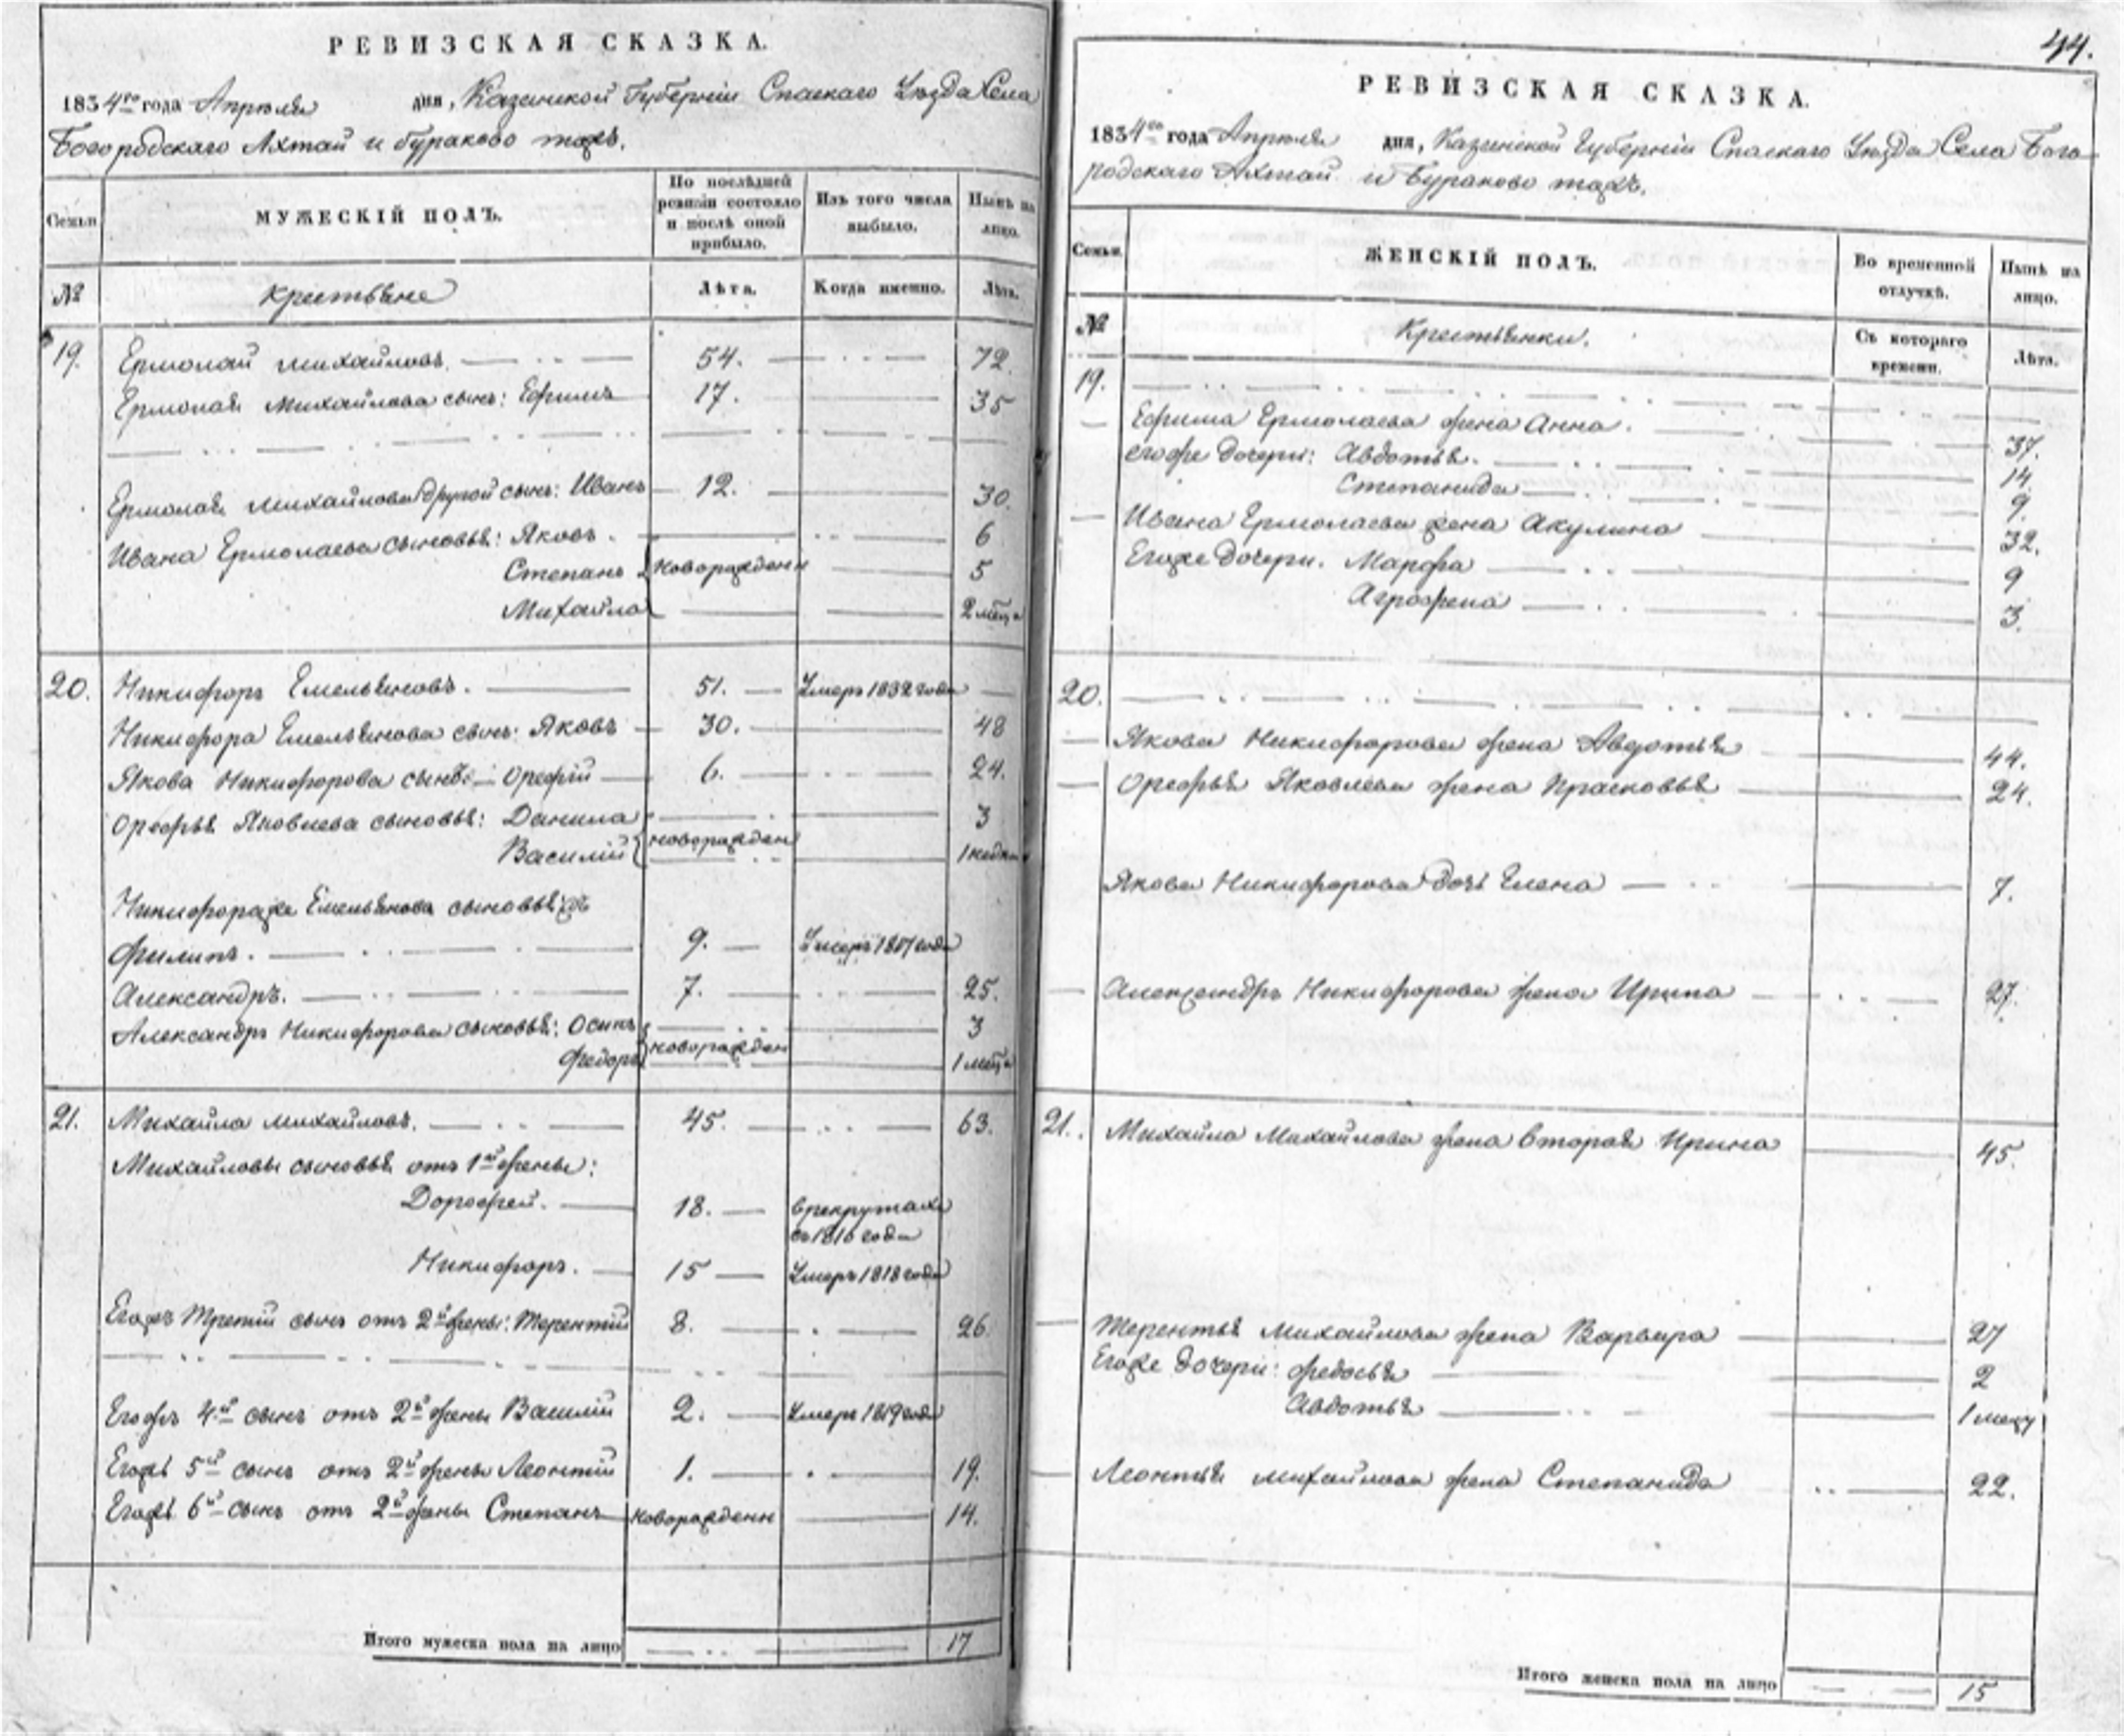 РЕВИЗСКАЯ СКАЗКА.
1834го года Апреля дня, Казанской Губернiи Спаскаго Уѣзда Села
Богородскаго Ахтай и Бураково тожъ.
Семьи
МУЖЕСКІЙ ПОЛЪ.
По послѣдней ревизіи состояло и послѣ оной прибыло.
Изъ того числа выбыло.
Нынѣ на лицо.
№
Крестьяне
Лѣта.
Когда именно.
Лѣта.
19. Ермолай Михайловъ. 54. 72.
Ермолая Михайлова сынъ: Ефимъ 17. 35
Ермолая Михайлова другой сынъ: Иванъ 12. 30.
Ивана Ермолаева сыновья: Яковъ. 6
Степанъ новорожденн 5
Михайла 2 меца
20. Никифоръ Емельяновъ. 51. Умеръ 1832 года
Никифора Емельянова сынъ: Яковъ 30. 48
Якова Никифорова сынъ: Орефiй 6. 24.
Орефья Яковлева сыновья: Данила 3
Василiй новорожден 1 недели
Никифора же Емельянова сыновья:
Филипъ. 9. Умеръ года
Александръ. 7. 25.
Александръ Никифорова сыновья: Осипъ 3
Федоръ новорожден 1 меца
21. Михайла Михайловъ. 45. 63.
Михайловы сыновья отъ 1й жены:
Дорофей. 18. в рекрутахъ
съ 1816 года
Никифоръ. 15 Умеръ 1818 года
Егожъ Третiй сынъ отъ 2й жены: Терентiй 8. 26
Егожъ 4й сынъ отъ 2й жены Василiй 2. Умеръ 1819 года
Егожъ 5й сынъ отъ 2й жены Леонтiй 1. 19.
Егожъ 6й сынъ отъ 2й жены Степанъ новорожденн 14.
Итого мужеска пола на лицо 17
44.
РЕВИЗСКАЯ СКАЗКА.
1834го года Апреля дня, Казанской Губернiи Спаскаго Уѣзда Села Бого
родскаго Ахтай и Бураково тожъ.
Семьи.
ЖЕНСКІЙ ПОЛЪ.
Во временной отлучкѣ.
Нынѣ на лицо.
№
Крестьянки.
Съ котораго времени.
Лѣта.
19.
Ефима Ермолаева жена Анна. 37.
егоже дочери: Авдотья. 14.
Степанида 9.
Ивана Ермолаева жена Акулина 32.
Егоже дочери. Марфа 9
Аграфена 3.
20.
Якова Никифорова жена Авдотья 44.
Орефья Яковлева жена Прасковья 24.
Якова Никифорова дочь Елена 7.
Александръ Никифорова жена Ирина 27.
21. Михайла Михайлова жена вторая Ирина 45.
Терентья Михайлова жена Варвара 27
Егоже дочери: Федосья 2
Авдотья 1 мецу
Леонтья Михайлова жена Степанида 22.
Итого женска пола на лицо 15